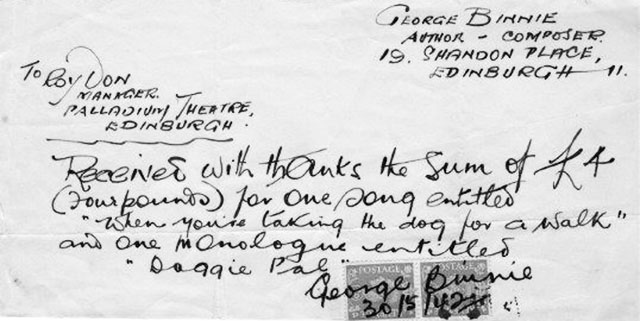 GEORGE BINNIE
AUTHOR - COMPOSER.
19. SHANDON PLACE,
EDINBURGH 11.
To ROY DON
MANAGER.
PALLADIUM THEATRE,
EDINBURGH.
Received with thanks the sum of £4
(four pounds) for one song entitled
"When you're taking the dog for a walk"
and one monologue entitled
"Doggie Pal"
POSTAGE POSTAGE
George Binnie
30/5/42